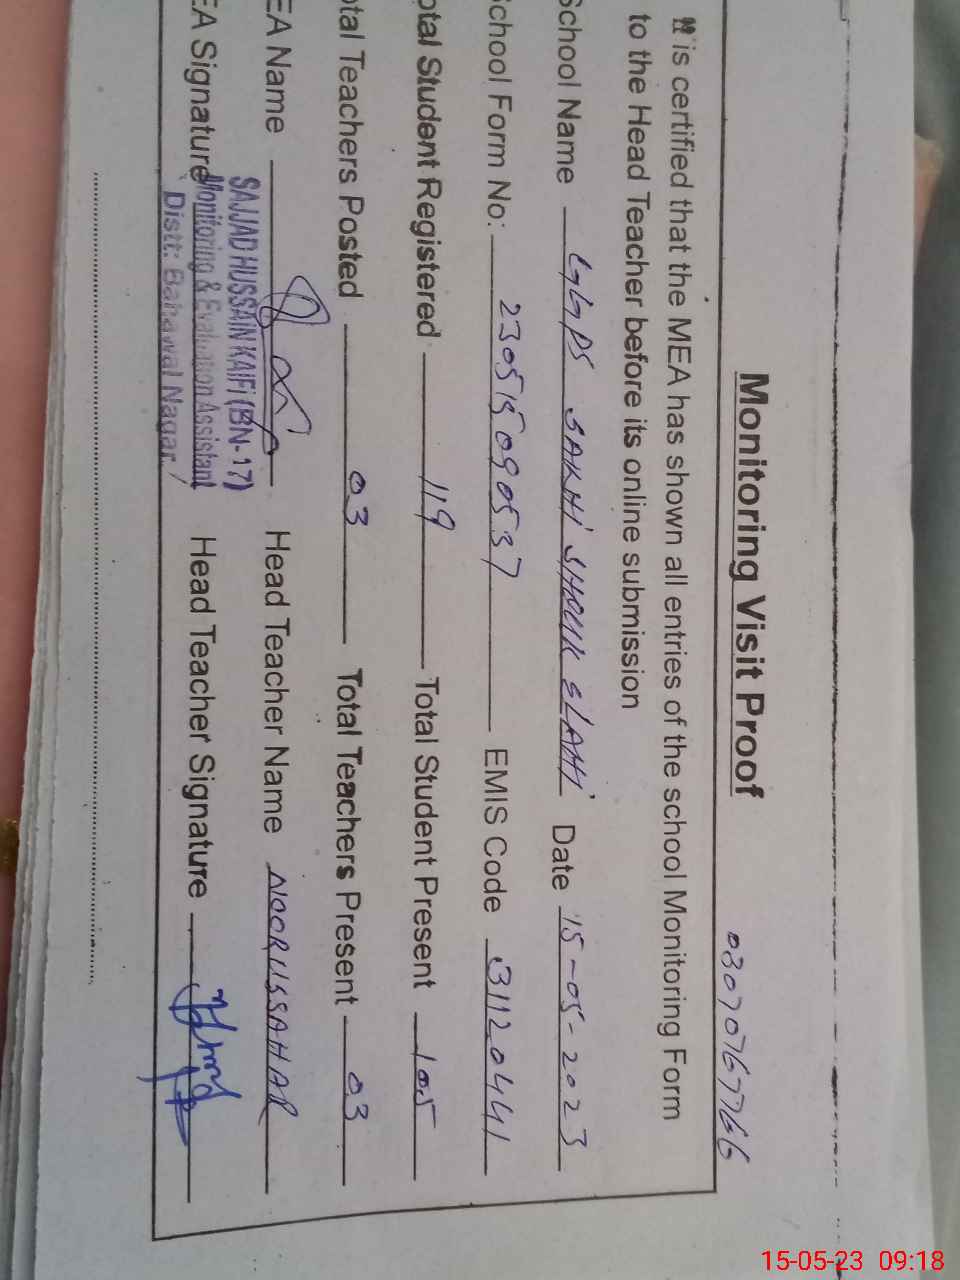 Monitoring Visit Proof
03070767766
It is certified that the MEA has shown all entries of the school Monitoring Form
to the Head Teacher before its online submission
School Name GGPS SAKHI SHOUK ELAHI Date 15-05-2023
School Form No: 230515090537 EMIS Code 31120441
otal Student Registered 119 Total Student Present 105
otal Teachers Posted 03 Total Teachers Present 03
EA Name Head Teacher Name NOORUSSAHAR
SAJJAD HUSSAIN KAIFI (BN-17)
EA Signature Monitoring & Evaluation Assistant Head Teacher Signature
Distt: Bahawal Nagar.
15-05-23 09:18